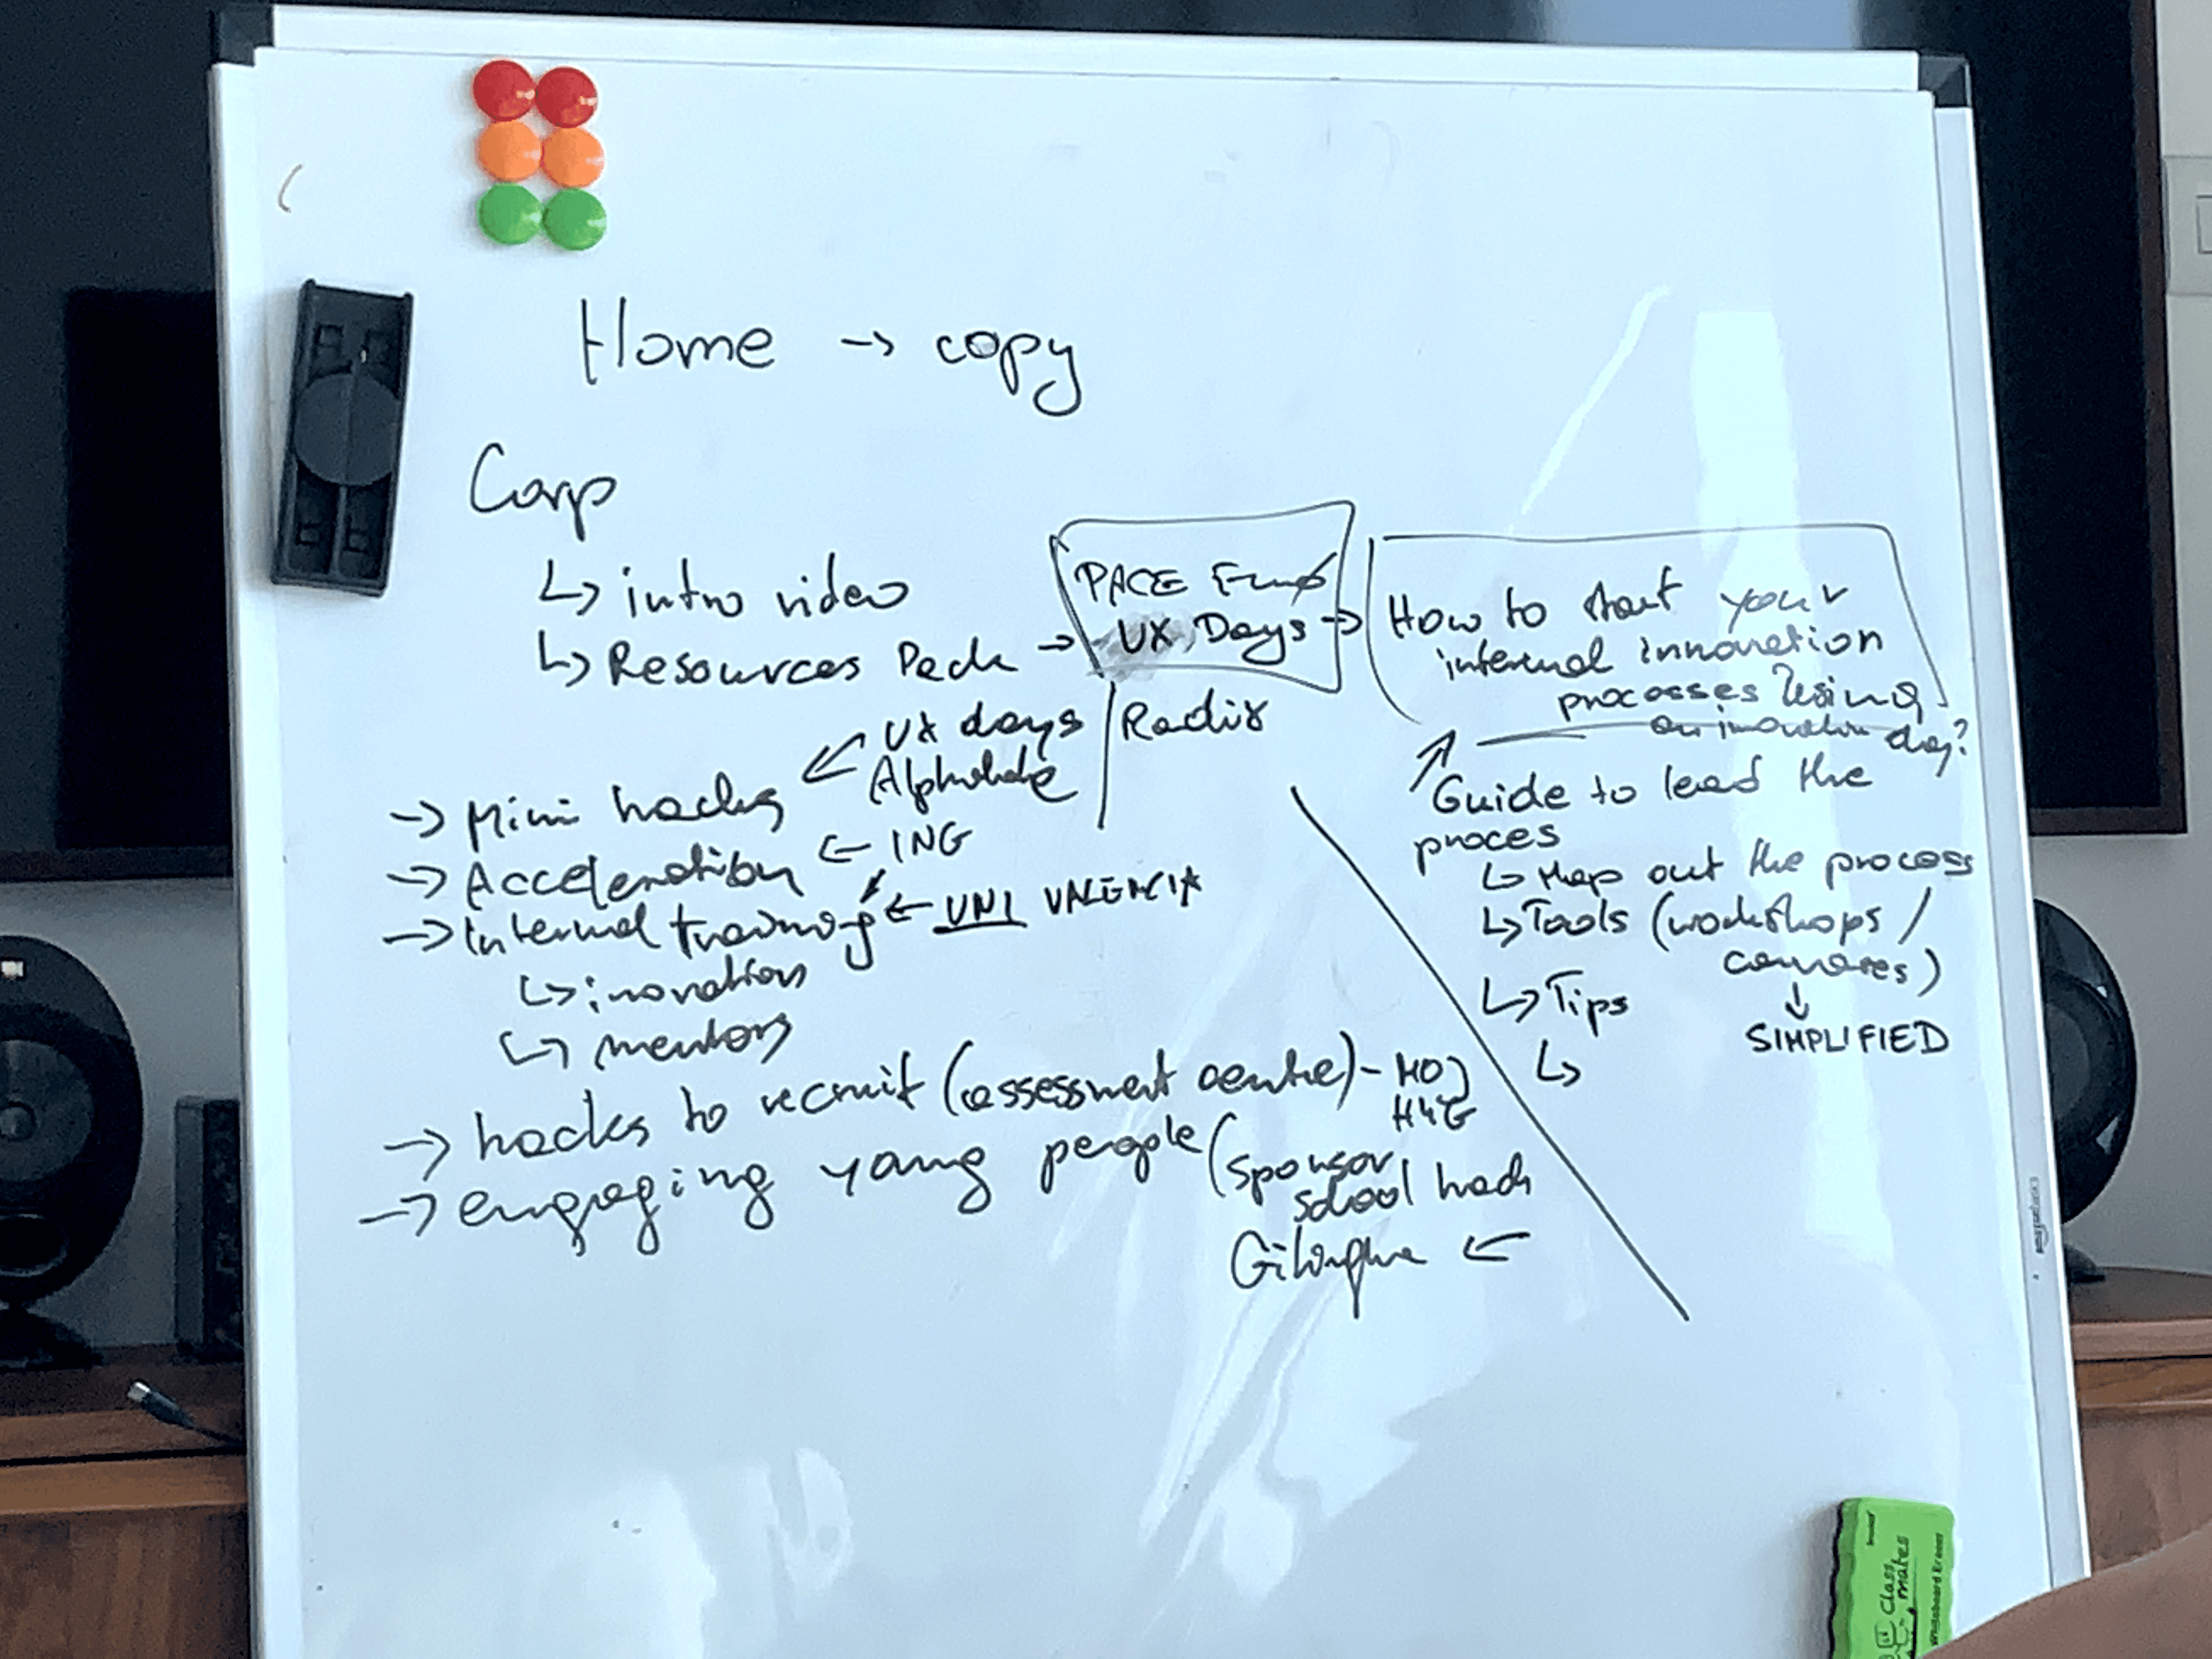 Home → copy
Corp
↳ intro video
↳ Resources Pack →
PACE
UX Days →
Radix
How to start your
internal innovation
processes using
an inovation day?
Guide to lead the
proces
↳ Map out the process
↳ Tools (workshops /
canvases)
↓
SIMPLIFIED
↳ Tips
↳
→ Mini hacks ← UX days
→ Acceleration ← ING
→ Internal training ← UNI VALENCIA
↳ inovation
↳ mentors
→ hacks to recruit (assessment centre) -
→ engaging yang people (sponsor
school hack
←
Class
mates
Whiteboard Eraser